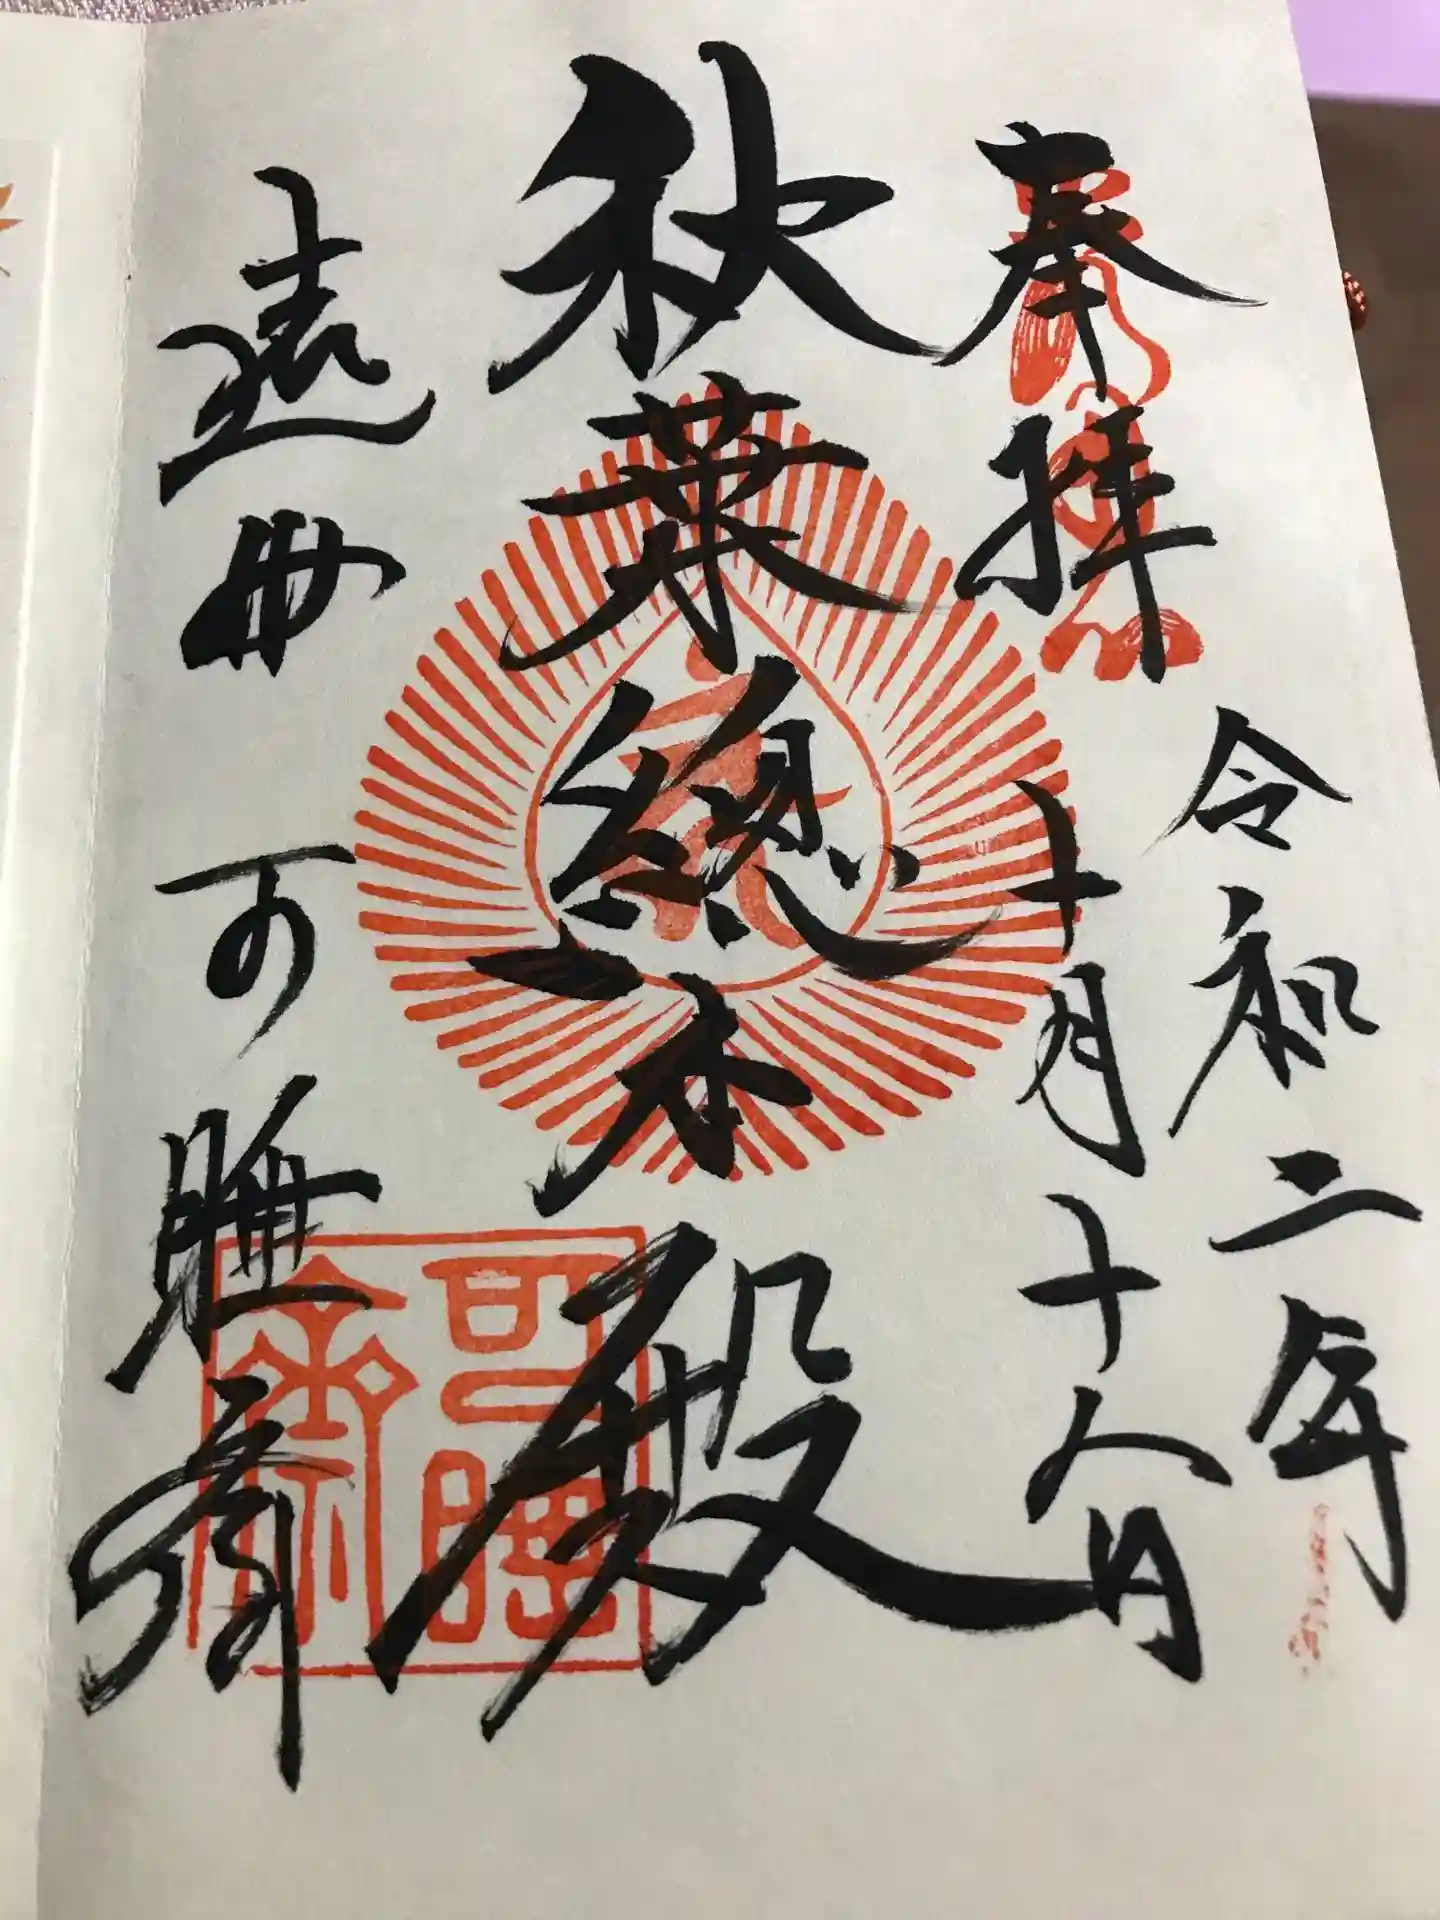 奉拝
令和二年
十月十八日
秋葉總本殿
遠州 可睡齋
可睡齋